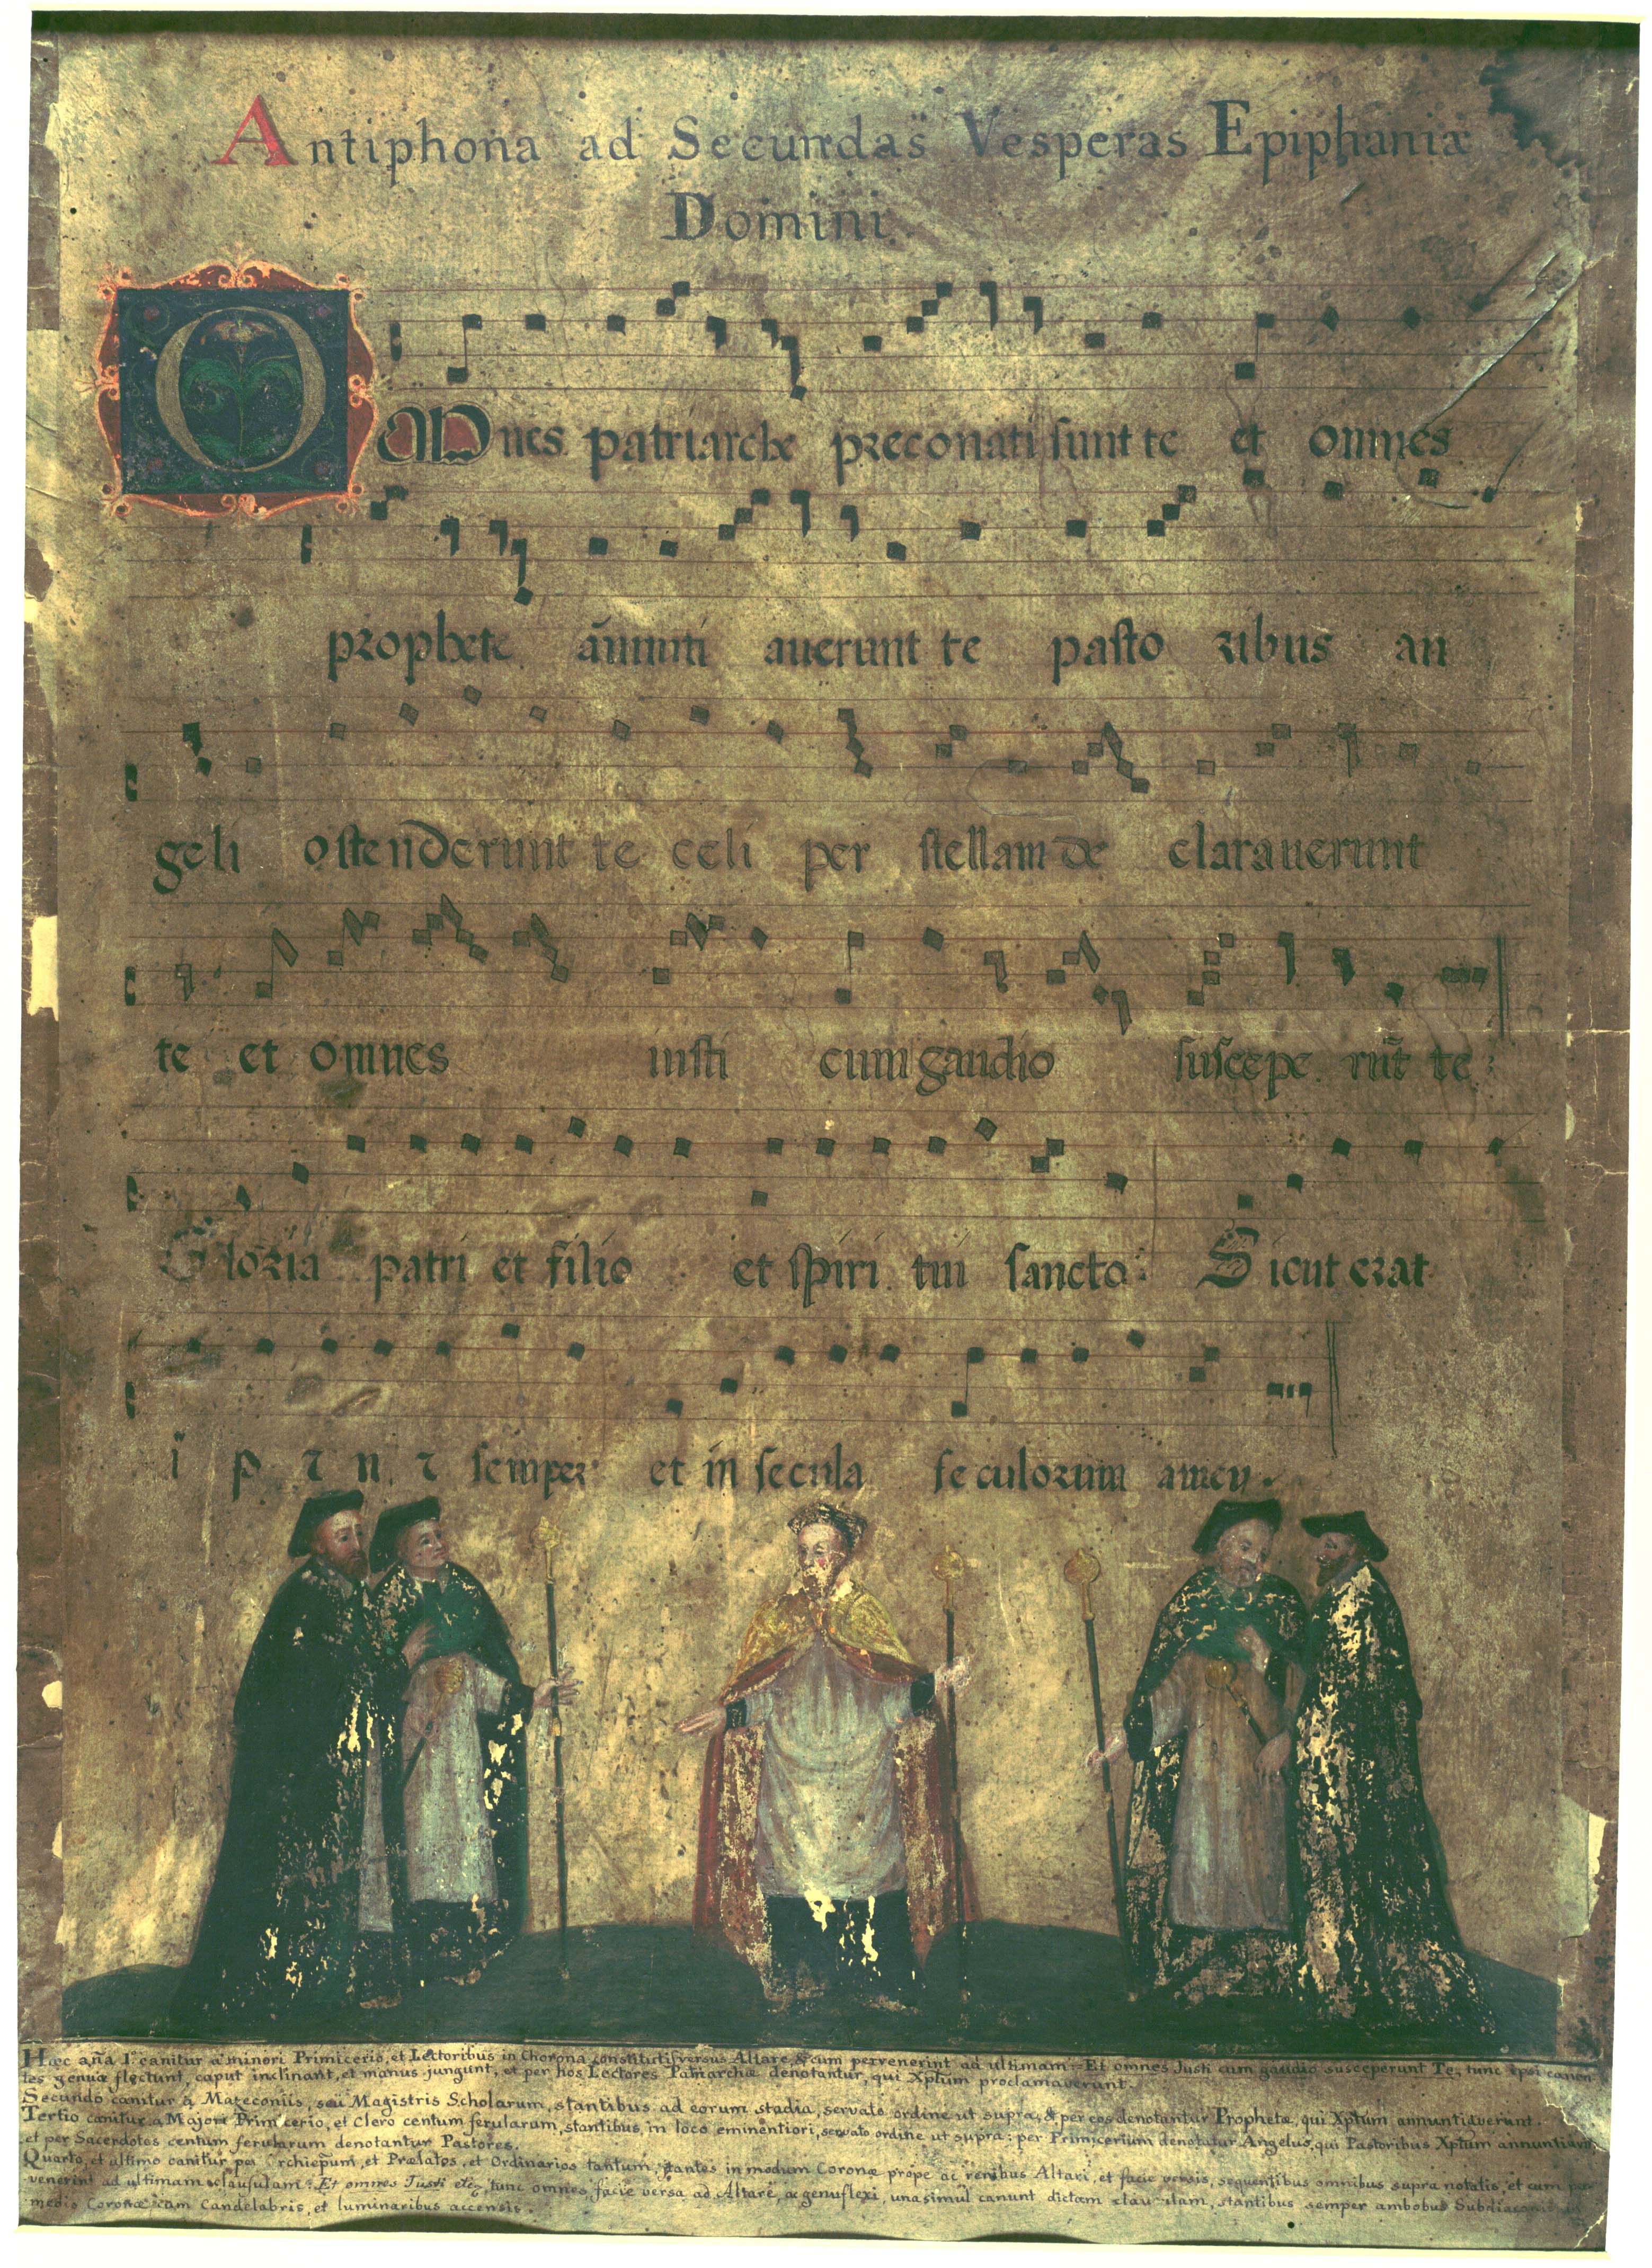 Antiphona ad Secundas Vesperas Epiphaniæ
Domini.
OMnes patriarche preconati sunt te et omnes
prophete añunti auerunt te pasto ribus an
geli ostenderunt te celi per stellam de clarauerunt
te et omnes iusti cum gaudio suscepe rūt te:
Gloria patri et filio et spiri tui sancto: Sicut erat
ĩ p ꞇ n ꞇ semper et in secula se culorum amen.
Hæc aña 1.º canitur a minori Primicerio, et Lectoribus in Chorona constitutis versus Altare, & cum pervenerint ad ultimam: Et omnes Justi cum gaudio susceperunt Te, tunc ipsi canen-
tes genua flectunt, caput inclinant, et manus jungunt, et per hos Lectores Patriarchæ denotantur, qui Xptum proclamaverunt.
Secundo canitur a Mazeconiis, seu Magistris Scholarum, stantibus ad eorum stadia, servato ordine ut supra, & per eos denotantur Prophetæ, qui Xptum annuntiaverunt.
Tertio canitur a Majori Primicerio, et Clero centum ferularum, stantibus in loco eminentiori, servato ordine ut supra: per Primicerium denotatur Angelus, qui Pastoribus Xptum annuntiavit,
et per Sacerdotes centum ferularum denotantur Pastores.
Quarto, et ultimo canitur per rchiepum, et Prælatos, et Ordinarios tantum, stantes in modum Coronæ prope ac renibus Altari, et facie versis, sequentibus omnibus supra notatis, et cum per
venerint ad ultimam clausulam: Et omnes Justi etc, tunc omnes, facie versa ad Altare, ac genuflexi, una simul canunt dictam clausulam, stantibus semper ambobus Subdiaconis
medio Coronæ cum Candelabris, et luminaribus accensis.